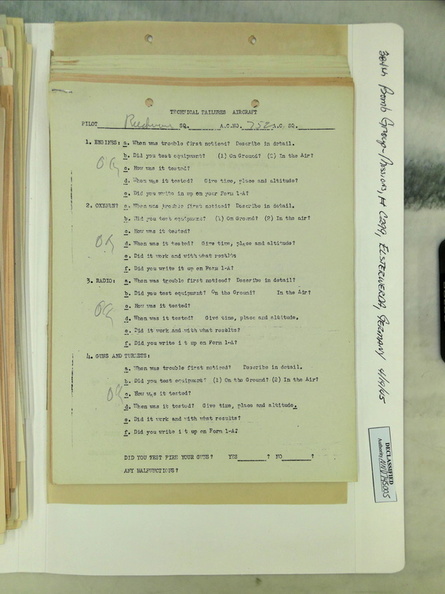 TECHNICAL FAILURES AIRCRAFT
PILOT SQ. A.C.NO. 758 A.C. SQ.
1. ENGINES: a. When was trouble first noticed? Describe in detail.
b. Did you test equipment? (1) On Ground? (2) In the Air?
OK
c. How was it tested?
d. When was it tested? Give time, place and altitude?
e. Did you write in up on your Form 1-A?
2. OXYGEN: a. When was trouble first noticed? Describe in detail.
b. Did you test equipment? (1) On Ground? (2) In the air?
c. How was it tested?
OK
d. When was it tested? Give time, place and altitude?
e. Did it work and with what results
f. Did you write it up on Form 1-A?
3. RADIO: a. When was trouble first noticed? Describe in detail?
b. Did you test equipment? On the Ground? In the Air?
c. How was it tested?
OK
d. When was it tested? Give time, place and altitude.
e. Did it work and with what results?
f. Did you write it up on Form 1-A?
4. GUNS AND TURRETS:
a. When was trouble first noticed? Describe in detail.
b. Did you test equipment? (1) On the Ground? (2) In the Air?
OK
c. How was it tested?
d. When was it tested? Give time, place and altitude.
e. Did it work and with what results?
f. Did you write it up on Form 1-A?
DID YOU TEST FIRE YOUR GUNS? YES ? NO ?
ANY MALFUNCTIONS?
384th Bomb Group-/Mission, #, ELSTERWERDA, GERMANY 4/19/45
DECLASSIFIED
Authority